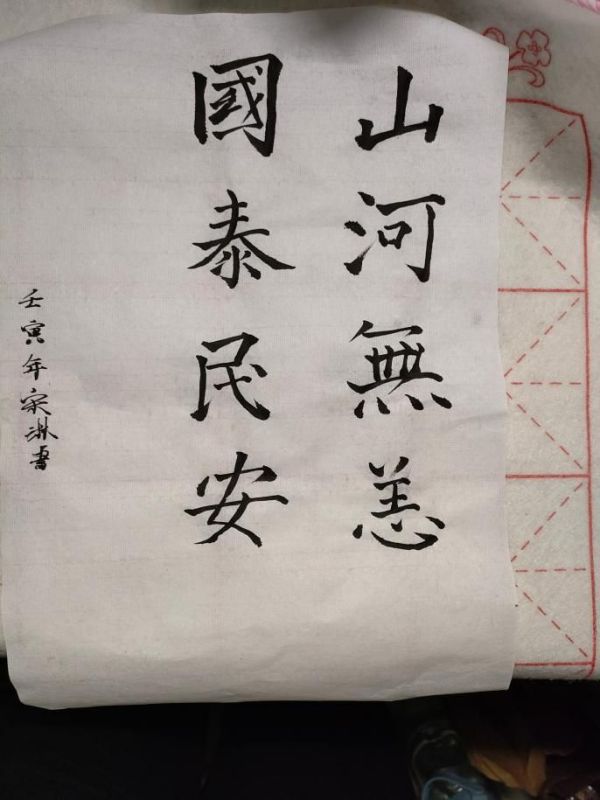 山河無恙
國泰民安
壬寅年宋淋書